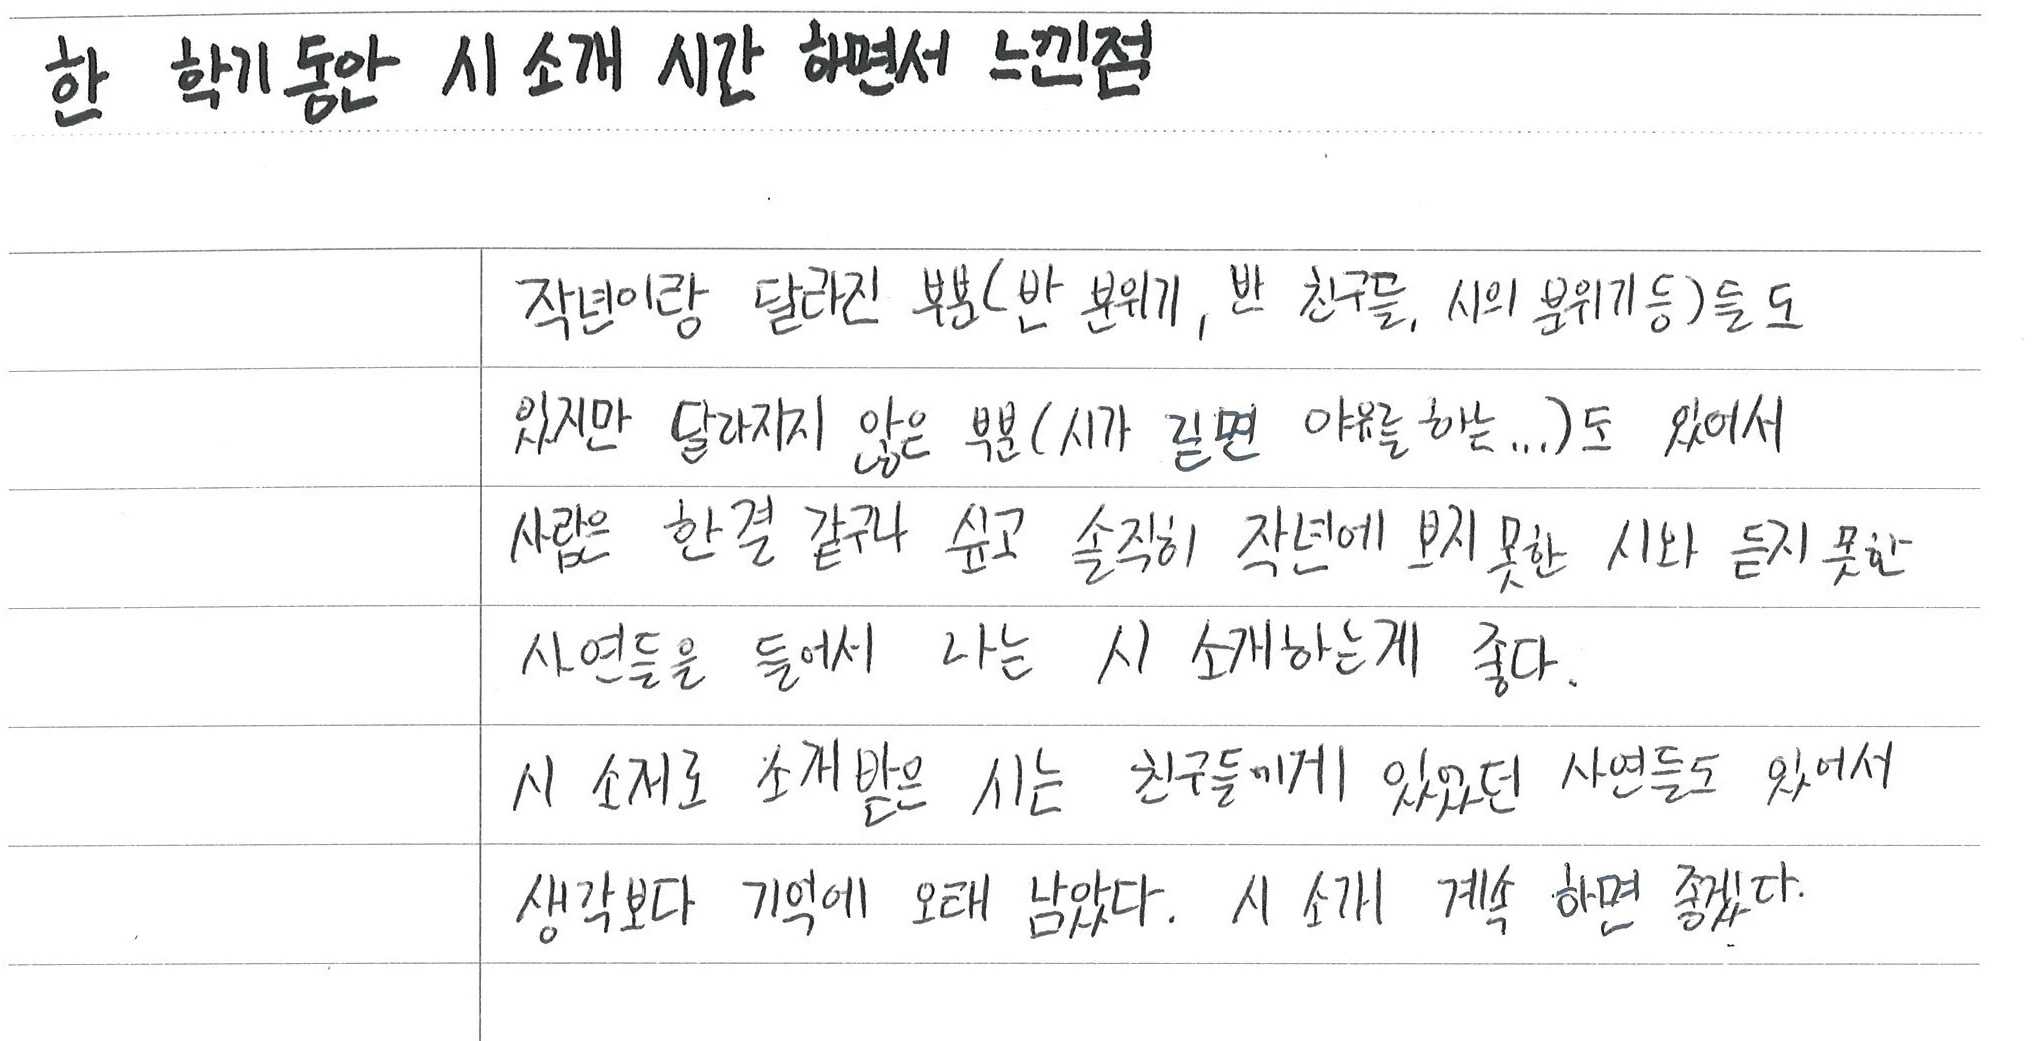 한 학기동안 시 소개 시간 하면서 느낀점
작년이랑 달라진 부분(반 분위기, 반 친구들, 시의 분위기 등)들도
있지만 달라지지 않은 부분(시가 길면 야유를 하는...)도 있어서
사람은 한결 같구나 싶고 솔직히 작년에 보지 못한 시와 듣지 못한
사연들을 들어서 나는 시 소개하는게 좋다.
시 소재로 소개 받은 시는 친구들에게 있었던 사연들도 있어서
생각보다 기억에 오래 남았다. 시 소개 계속 하면 좋겠다.